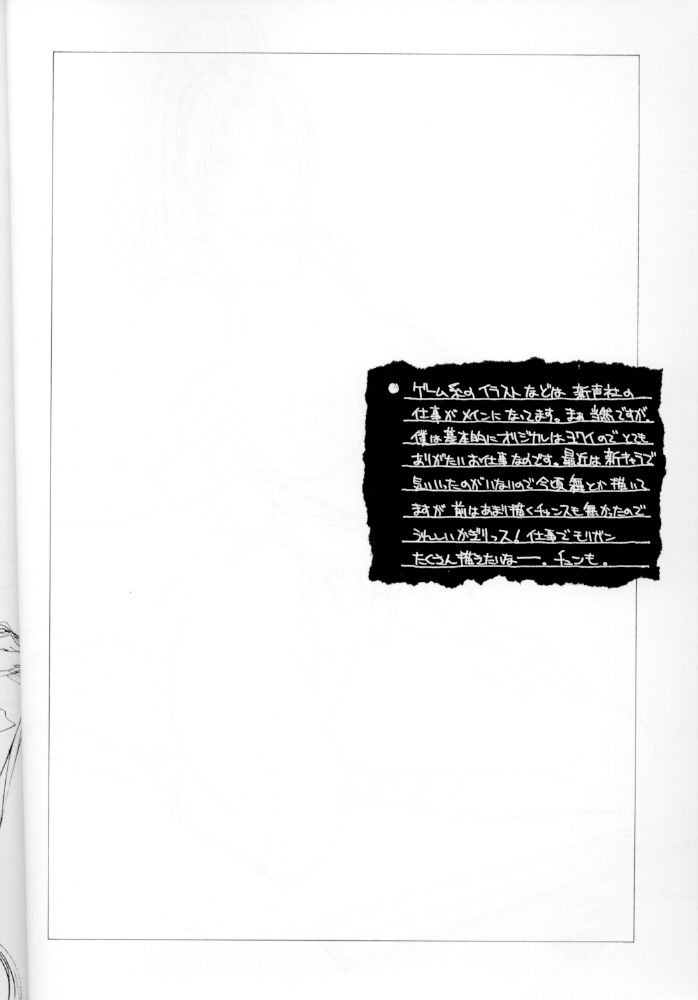 ●ゲーム系のイラストなどは 新声社の
仕事がメインになってます。まぁ当然ですが、
僕は基本的にオリジナルはヨワイのでとても
ありがたいお仕事なのです。最近は新キャラで
気にいったのがいないので今頃舞とか描いて
ますが前はあまり描くチャンスも無かったので
うれしいかぎりっス!仕事でモリガン
たくさん描きたいなー。チュンも。